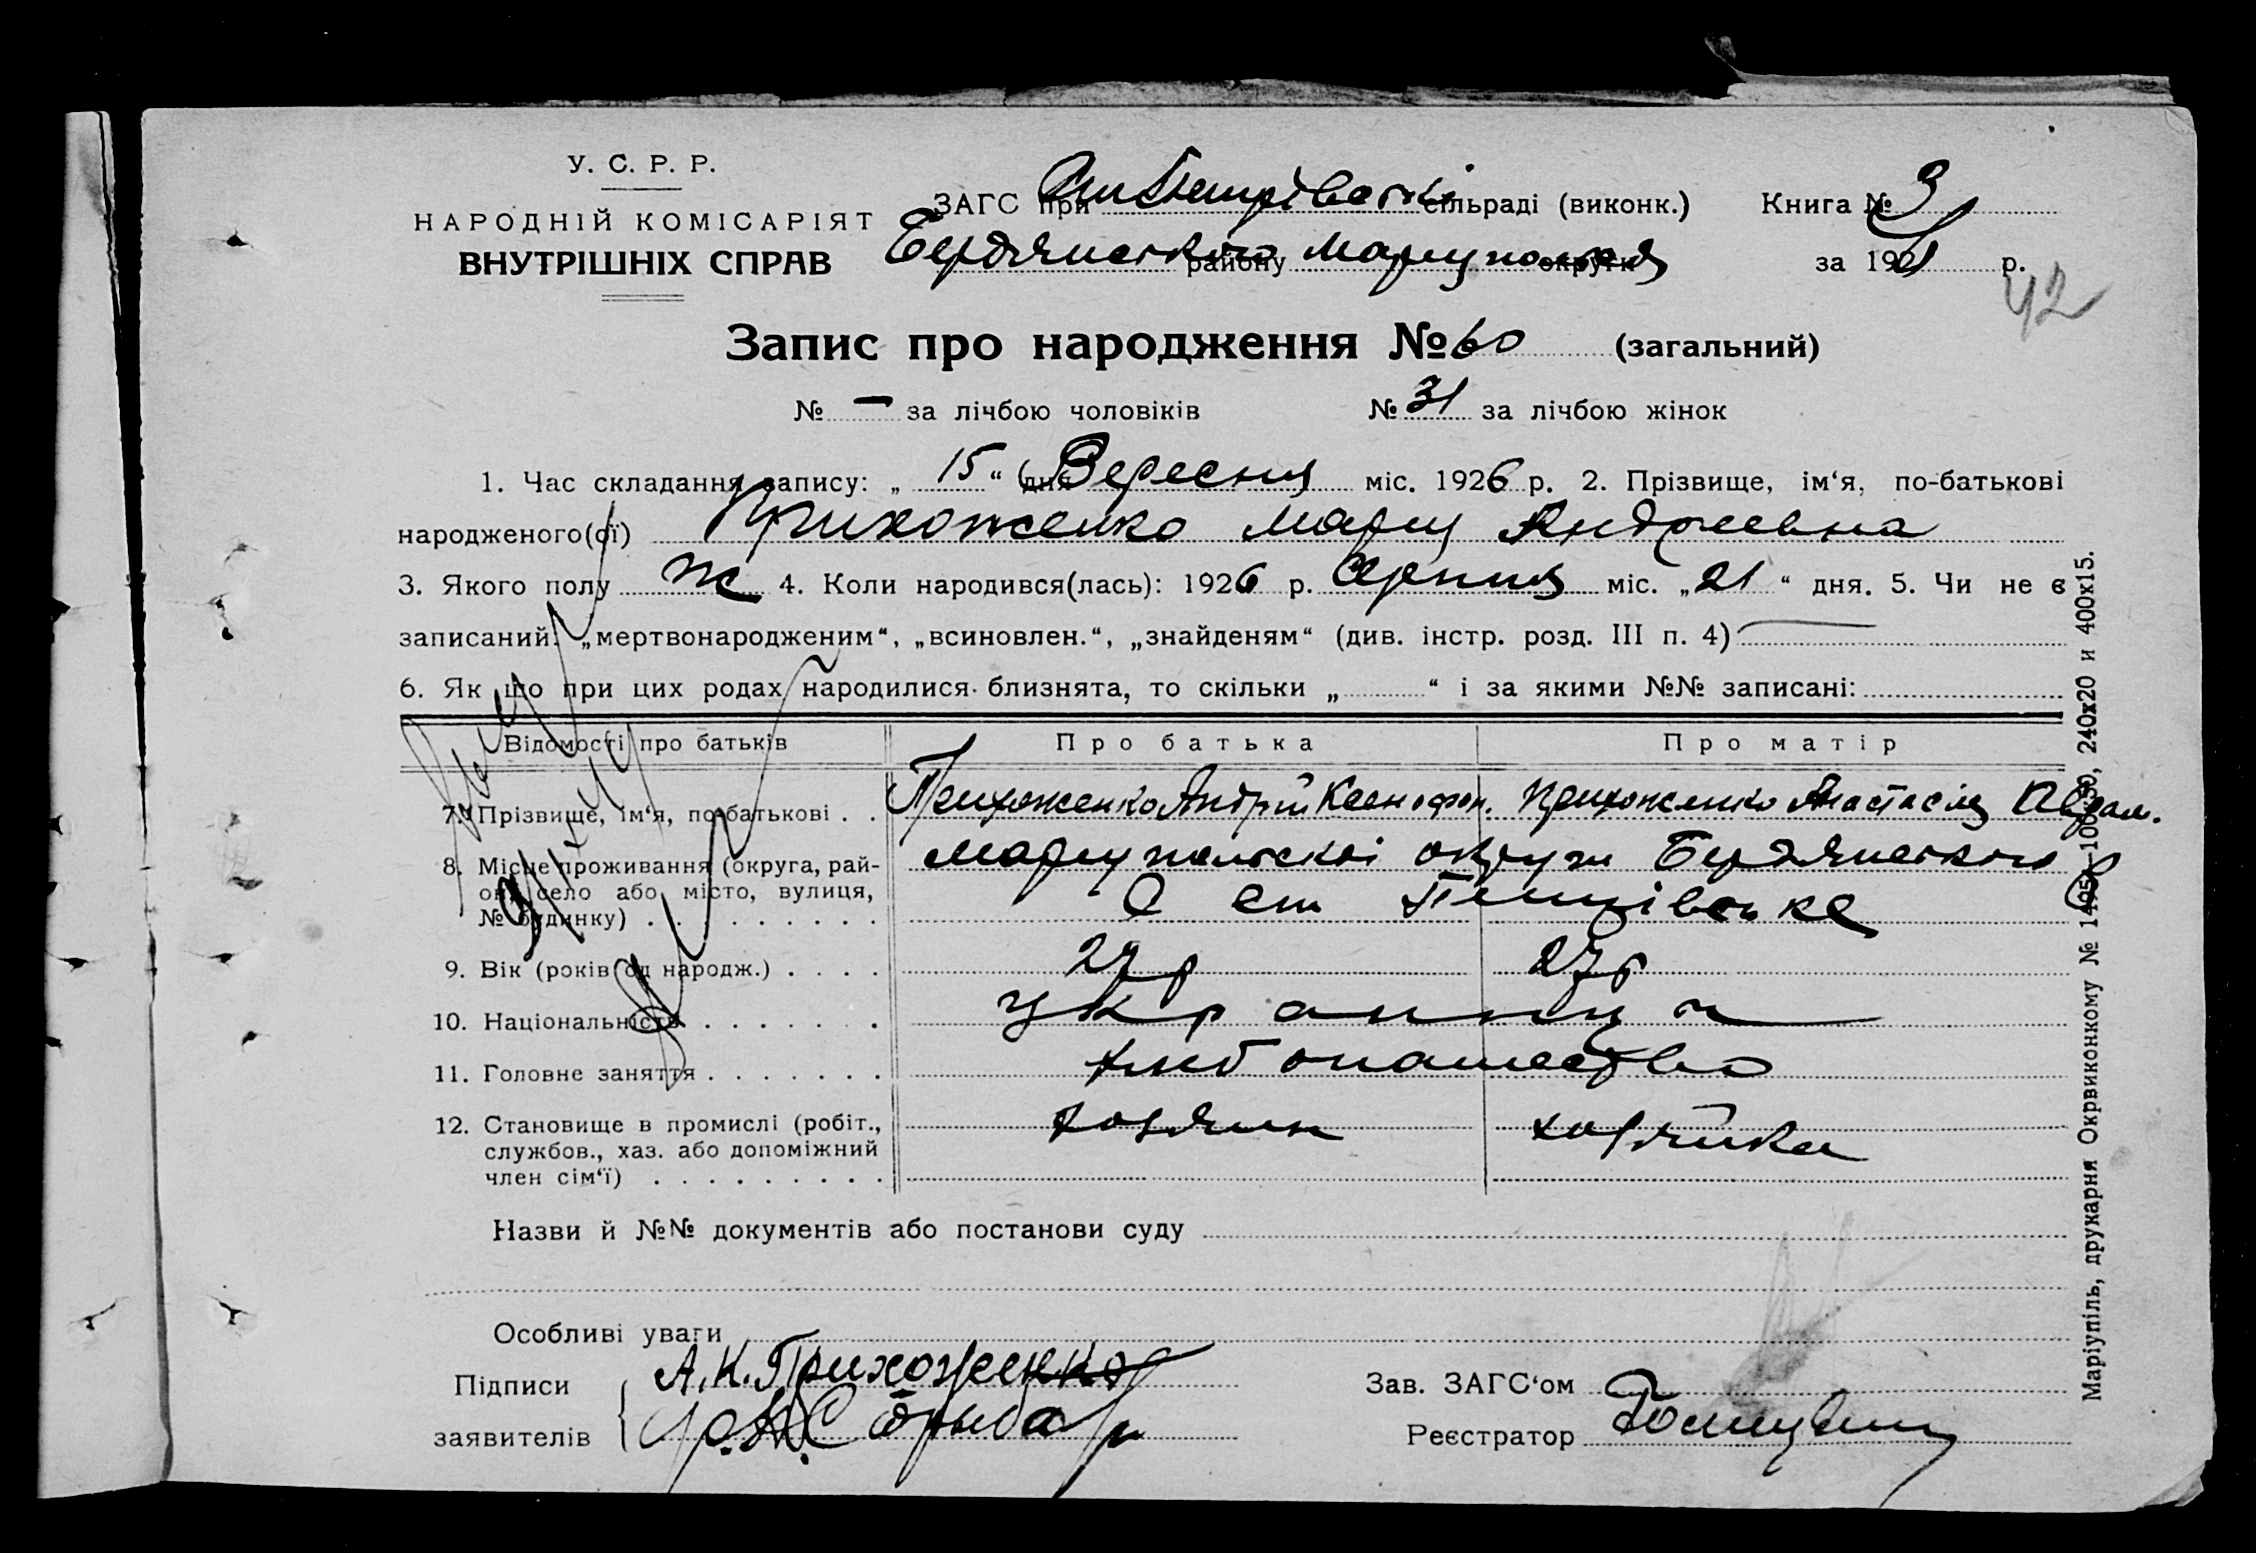 У. С. Р. Р.
НАРОДНІЙ КОМІСАРІЯТ
ВНУТРІШНІХ СПРАВ
ЗАГС при сільраді (виконк.) Книга № 3
Бердянського району Маріупольск округи за 1926 р.
42
Запис про народження № 60 (загальний)
№ — за лічбою чоловіків № 31 за лічбою жінок
1. Час складання запису: „ 15 “ дня Вересня міс. 1926 р. 2. Прізвище, ім‘я, по-батькові
народженого(ої) Прихоженко Мария Андреевна
3. Якого полу Ж 4. Коли народився(лась): 1926 р. Серпня міс. „ 21 “ дня. 5. Чи не є
записаний: „мертвонародженим“, „всиновлен.“, „знайденям“ (див. інстр. розд. III п. 4)
6. Як що при цих родах народилися близнята, то скільки „ “ і за якими №№ записані:
Відомості про батьків Про батька Про матір
7. Прізвище, ім‘я, по-батькові . . Прихоженко Андрій Ксенофон. Прихоженко Анастасія Аврам.
8. Місце проживання (округа, рай- Маріупольскої округи Бердянського
он, село або місто, вулиця,
№ будинку) . . . . . . . . . .
9. Вік (років од народж.) . . . . 27 р 27 р
10. Національність . . . . . . . украинци
11. Головне заняття . . . . . . . хлібопашество
12. Становище в промислі (робіт., хозяин хозяйка
службов., хаз. або допоміжний
член сім‘ї) . . . . . . . . . .
Назви й №№ документів або постанови суду
Особливі уваги
Підписи А.К. Прихоженко Зав. ЗАГС‘ом
заявителів Реєстратор
Маріупіль, друкарня Окрвиконкому № 1495—100×50, 240х20 и 400х15.